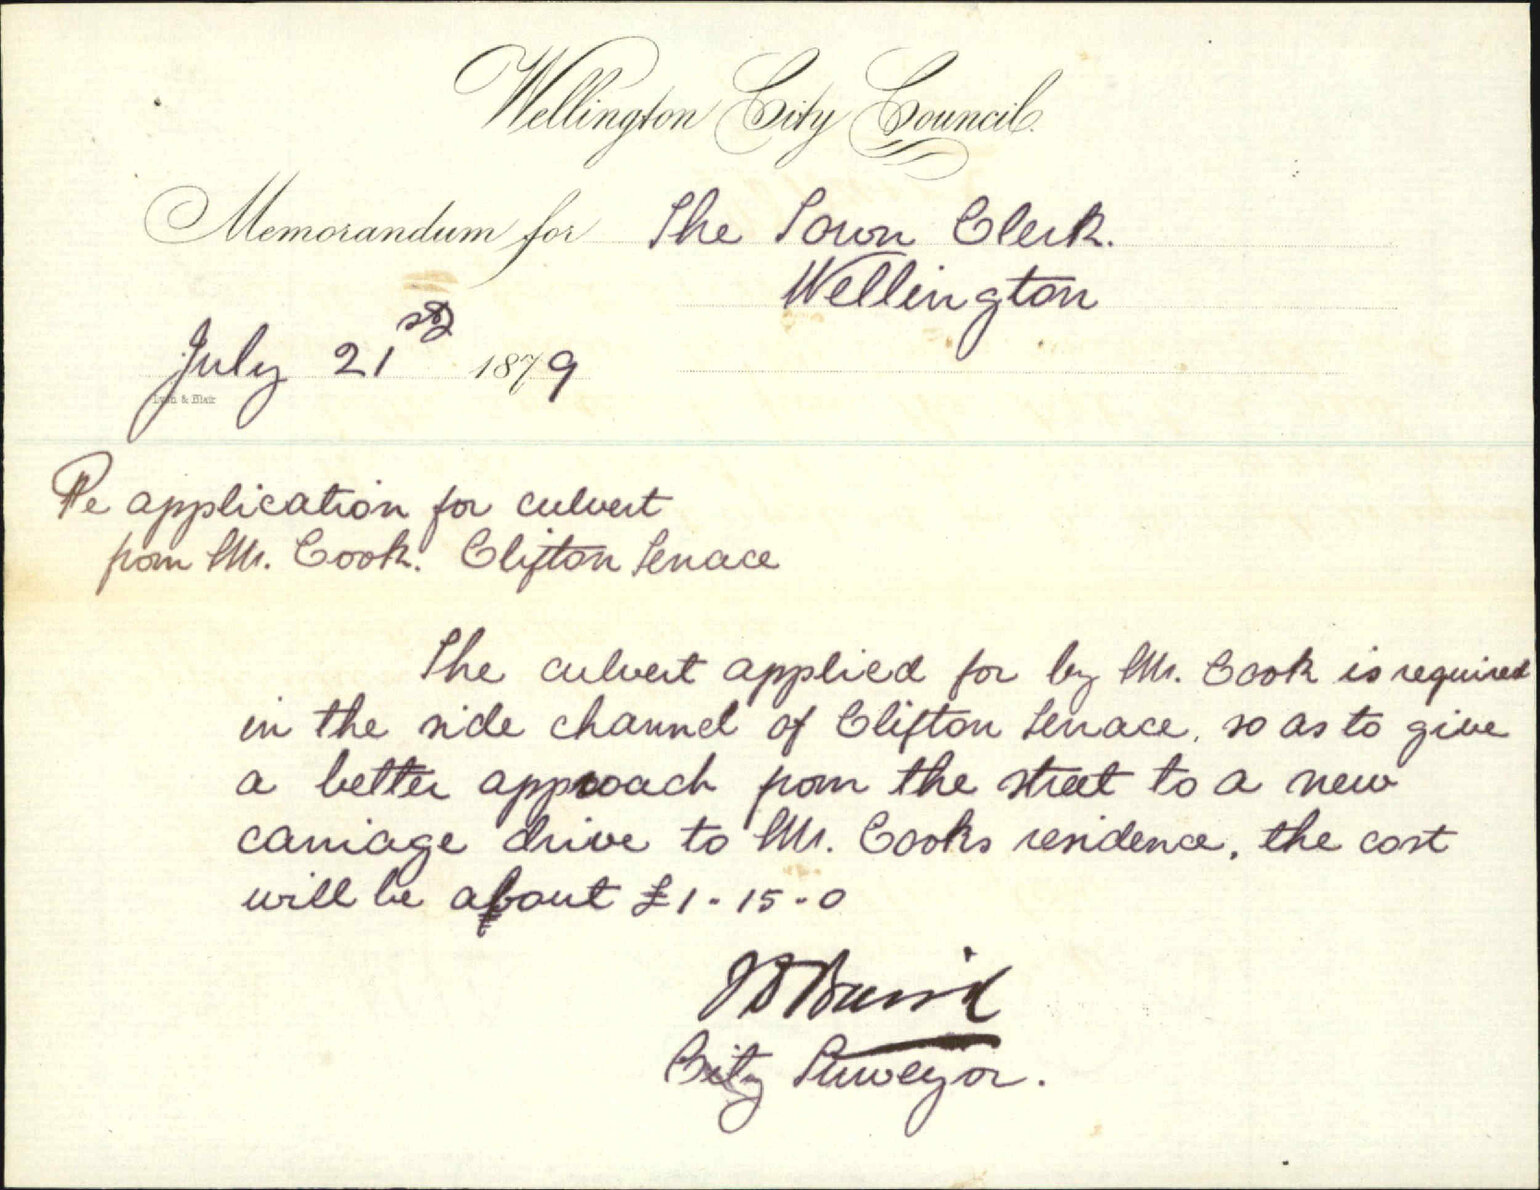 Wellington City Council.
Memorandum for The Town Clerk.
Wellington
July 21st 1879
Lyon & Blair
Re application for culvert
from Mr. Cook. Clifton Terrace
The culvert applied for by Mr. Cook is required
in the side channel of Clifton Terrace, so as to give
a better approach from the street to a new
carriage drive to Mr. Cooks residence, the cost
will be about £1-15-0
City Surveyor.